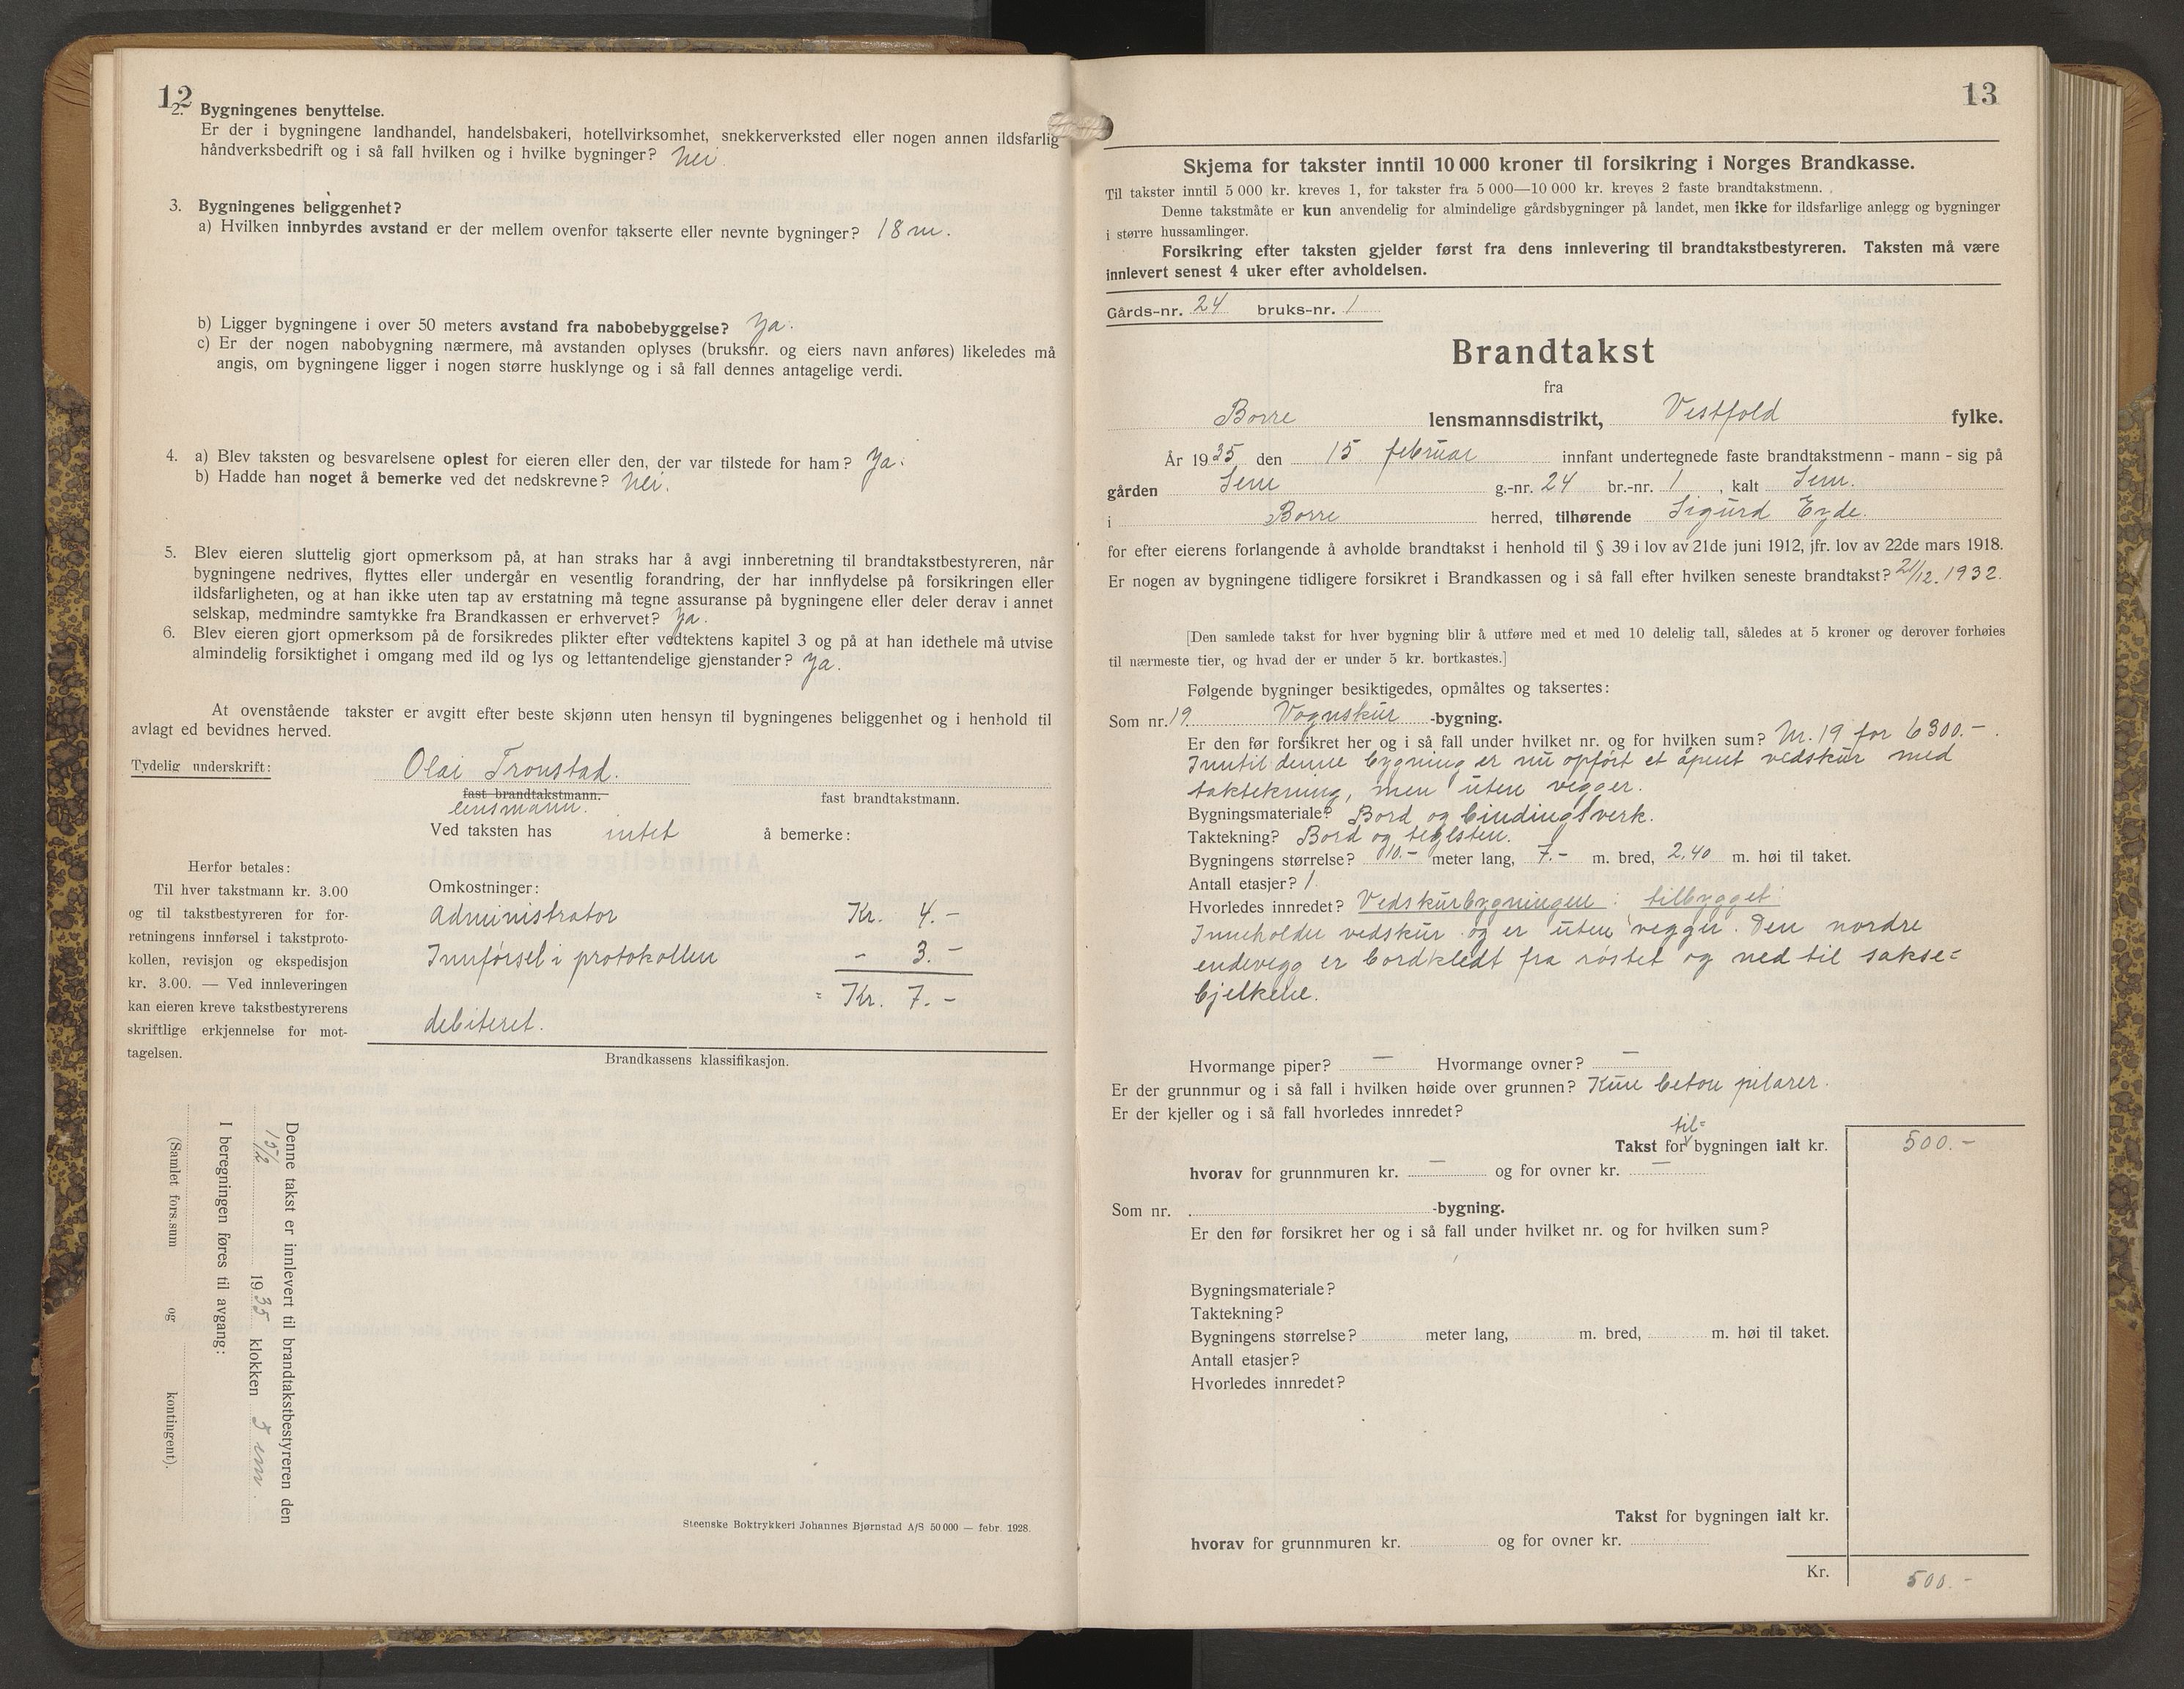 12
2. Bygningenes benyttelse.
Er der i bygningene landhandel, handelsbakeri, hotellvirksomhet, snekkerverksted eller nogen annen ildsfarlig
håndverksbedrift og i så fall hvilken og i hvilke bygninger? Nei.
3. Bygningenes beliggenhet?
a) Hvilken innbyrdes avstand er der mellem ovenfor takserte eller nevnte bygninger? 18 m.
b) Ligger bygningene i over 50 meters avstand fra nabobebyggelse? Ja.
c) Er der nogen nabobygning nærmere, må avstanden oplyses (bruksnr. og eiers navn anføres) likeledes må
angis, om bygningene ligger i nogen større husklynge og i så fall dennes antagelige verdi.
4. a) Blev taksten og besvarelsene oplest for eieren eller den, der var tilstede for ham? Ja.
b) Hadde han noget å bemerke ved det nedskrevne? Nei.
5. Blev eieren sluttelig gjort opmerksom på, at han straks har å avgi innberetning til brandtakstbestyreren, når
bygningene nedrives, flyttes eller undergår en vesentlig forandring, der har innflydelse på forsikringen eller
ildsfarligheten, og at han ikke uten tap av erstatning må tegne assuranse på bygningene eller deler derav i annet
selskap, medmindre samtykke fra Brandkassen er erhvervet? Ja.
6. Blev eieren gjort opmerksom på de forsikredes plikter efter vedtektens kapitel 3 og på at han idethele må utvise
almindelig forsiktighet i omgang med ild og lys og lettantendelige gjenstander? Ja.
At ovenstående takster er avgitt efter beste skjønn uten hensyn til bygningenes beliggenhet og i henhold til
avlagt ed bevidnes herved.
Tydelig underskrift: Olai Tronstad.
fast brandtakstmann. fast brandtakstmann.
lensmann.
Ved taksten has intet å bemerke:
Herfor betales:
Til hver takstmann kr. 3.00
og til takstbestyreren for for-
retningens innførsel i takstproto-
kollen, revisjon og ekspedisjon
kr. 3.00. — Ved innleveringen
kan eieren kreve takstbestyrerens
skriftlige erkjennelse for mot-
tagelsen.
Omkostninger:
Administrator Kr. 4.-
Innførsel i protokollen - 3.-
= Kr. 7.-
debiteret.
Brandkassens klassifikasjon.
Denne takst er innlevert til brandtakstbestyreren den
15/2 1935 klokken 5 em.
I beregningen føres til avgang:
(Samlet fors.sum og kontingent).
Steenske Boktrykkeri Johannes Bjørnstad A/S 50 000 — febr. 1928.
13
Skjema for takster inntil 10 000 kroner til forsikring i Norges Brandkasse.
Til takster inntil 5 000 kr. kreves 1, for takster fra 5 000—10 000 kr. kreves 2 faste brandtakstmenn.
Denne takstmåte er kun anvendelig for almindelige gårdsbygninger på landet, men ikke for ildsfarlige anlegg og bygninger
i større hussamlinger.
Forsikring efter taksten gjelder først fra dens innlevering til brandtakstbestyreren. Taksten må være
innlevert senest 4 uker efter avholdelsen.
Gårds-nr. 24 bruks-nr. 1
Brandtakst
fra
Borre lensmannsdistrikt, Vestfold fylke.
År 1935 den 15 februar innfant undertegnede faste brandtakstmenn - mann - sig på
gården Sem g.-nr. 24 br.-nr. 1, kalt Sem.
i Borre herred, tilhørende Sigurd Eyde.
for efter eierens forlangende å avholde brandtakst i henhold til § 39 i lov av 21de juni 1912, jfr. lov av 22de mars 1918.
Er nogen av bygningene tidligere forsikret i Brandkassen og i så fall efter hvilken seneste brandtakst? 21/12. 1932.
[Den samlede takst for hver bygning blir å utføre med et med 10 delelig tall, således at 5 kroner og derover forhøies
til nærmeste tier, og hvad der er under 5 kr. bortkastes.]
Følgende bygninger besiktigedes, opmåltes og taksertes:
Som nr. 19 Vognskur -bygning.
Er den før forsikret her og i så fall under hvilket nr. og for hvilken sum? Nr. 19 for 6300.-
Inntil denne bygning er nu opført et åpent vedskur med
taktekning, men uten vegger.
Bygningsmateriale? Bord og bindingsverk.
Taktekning? Bord og teglsten.
Bygningens størrelse? 10.- meter lang, 7.- m. bred, 2,40 m. høi til taket.
Antall etasjer? 1.
Hvorledes innredet? Vedskurbygningen: tilbygget:
Inneholder vedskur og er uten vegger. Den nordre
endevegg er bordkledt fra røstet og ned til sakse=
bjelkene.
Hvormange piper? — Hvormange ovner? —
Er der grunnmur og i så fall i hvilken høide over grunnen? Kun beton pilarer.
Er der kjeller og i så fall hvorledes innredet?
til=
Takst for bygningen ialt kr. 500.-
hvorav for grunnmuren kr. — og for ovner kr. —
Som nr. -bygning.
Er den før forsikret her og i så fall under hvilket nr. og for hvilken sum?
Bygningsmateriale?
Taktekning?
Bygningens størrelse? meter lang, m. bred, m. høi til taket.
Antall etasjer?
Hvorledes innredet?
Takst for bygningen ialt kr.
hvorav for grunnmuren kr. og for ovner kr.
Kr. 500.-